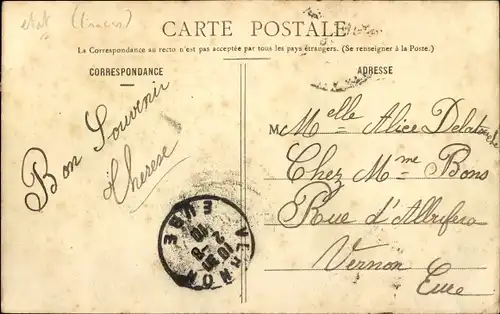 CARTE POSTALE
La Correspondance au recto n'est pas acceptée par tous les pays étrangers. (Se renseigner à la Poste.)
CORRESPONDANCE
ADRESSE
Bon Souvenir
Therese
M Melle Alice Delatouche
Chez Mme Bons
Rue d'Albufera
Vernon
Eure
VERNON
EURE